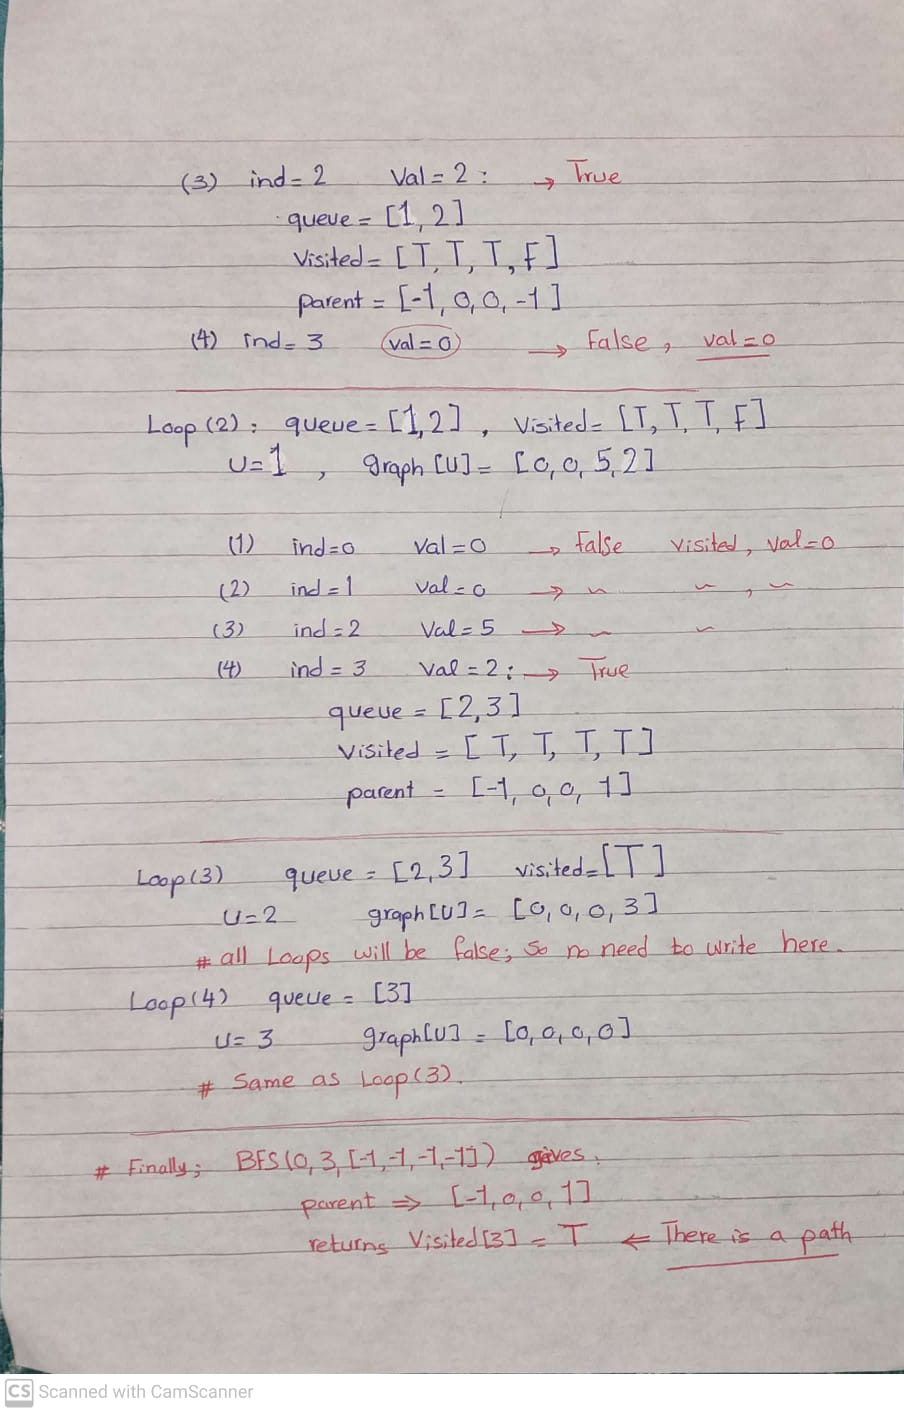 (3) ind = 2 Val = 2 : → True
queue = [1, 2]
Visited = [T, T, T, F]
parent = [-1, 0, 0, -1]
(4) ind = 3 val = 0 → False, val = 0
Loop (2) : queue = [1, 2] , Visited = [T, T, T, F]
U = 1 , graph [U] = [0, 0, 5, 2]
(1) ind = 0 Val = 0 → False visited, val = 0
(2) ind = 1 Val = 0 → " " , "
(3) ind = 2 Val = 5 → " "
(4) ind = 3 Val = 2 : → True
queue = [2, 3]
Visited = [T, T, T, T]
parent = [-1, 0, 0, 1]
Loop (3) queue = [2, 3] visited = [T]
U = 2 graph [U] = [0, 0, 0, 3]
# all Loops will be false; so no need to write here.
Loop (4) queue = [3]
U = 3 graph [U] = [0, 0, 0, 0]
# Same as Loop (3).
# Finally; BFS (0, 3, [-1, -1, -1, -1]) gives,
parent ⇒ [-1, 0, 0, 1]
returns Visited [3] = T ← There is a path
CS Scanned with CamScanner